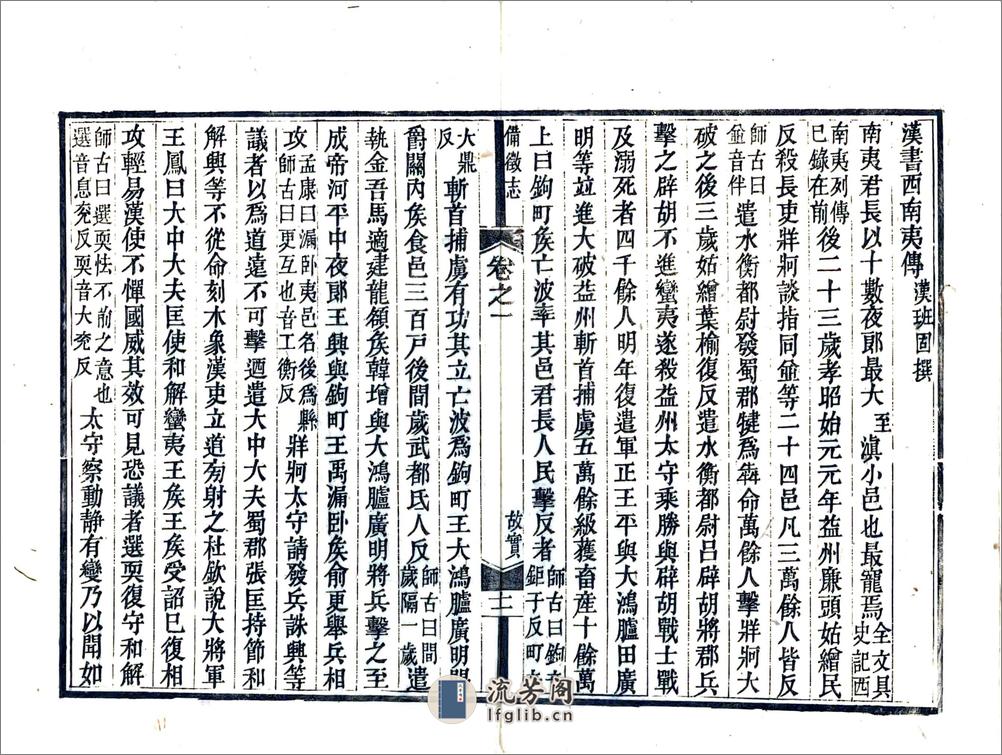 漢書西南夷傳 漢班固撰
南夷君長以十數夜郎最大 至 滇小邑也最寵焉 全文具史記西
南夷列傳已錄在前 後二十三歲孝昭始元元年益州廉頭姑繒民
反殺長吏牂牁談指同並等二十四邑凡三萬餘人皆反
師古曰並音伴 遣水衡都尉發蜀郡犍爲犇命萬餘人擊牂牁大
破之後三歲姑繒葉榆復反遣水衡都尉呂辟胡將郡兵
擊之辟胡不進蠻夷遂殺益州太守乘勝與辟胡戰士戰
及溺死者四千餘人明年復遣軍正王平與大鴻臚田廣
明等竝進大破益州斬首捕虜五萬餘級獲畜産十餘萬
上曰鉤町矦亡波率其邑君長人民擊反者 師古曰鉤音鉅于反町音
備徵志 卷之一 故實 二
大鼎反 斬首捕虜有功其立亡波爲鉤町王大鴻臚廣明賜
爵關內矦食邑三百戸後閒歲武都氐人反 師古曰閒歲隔一歲 遣
執金吾馬適建龍頟矦韓增與大鴻臚廣明將兵擊之至
成帝河平中夜郎王興與鉤町王禹漏卧矦俞更舉兵相
攻 孟康曰漏卧夷邑名後爲縣師古曰更互也音工衡反 牂牁太守請發兵誅興等
議者以爲道遠不可擊迺遣大中大夫蜀郡張匡持節和
解興等不從命刻木象漢吏立道旁射之杜欽說大將軍
王鳳曰大中大夫匡使和解蠻夷王矦王矦受詔已復相
攻輕易漢使不憚國威其效可見恐議者選耎復守和解
師古曰選耎怯不前之意也選音息兖反耎音人兖反 太守察動靜有變乃以聞如
流芳阁
lfglib.cn